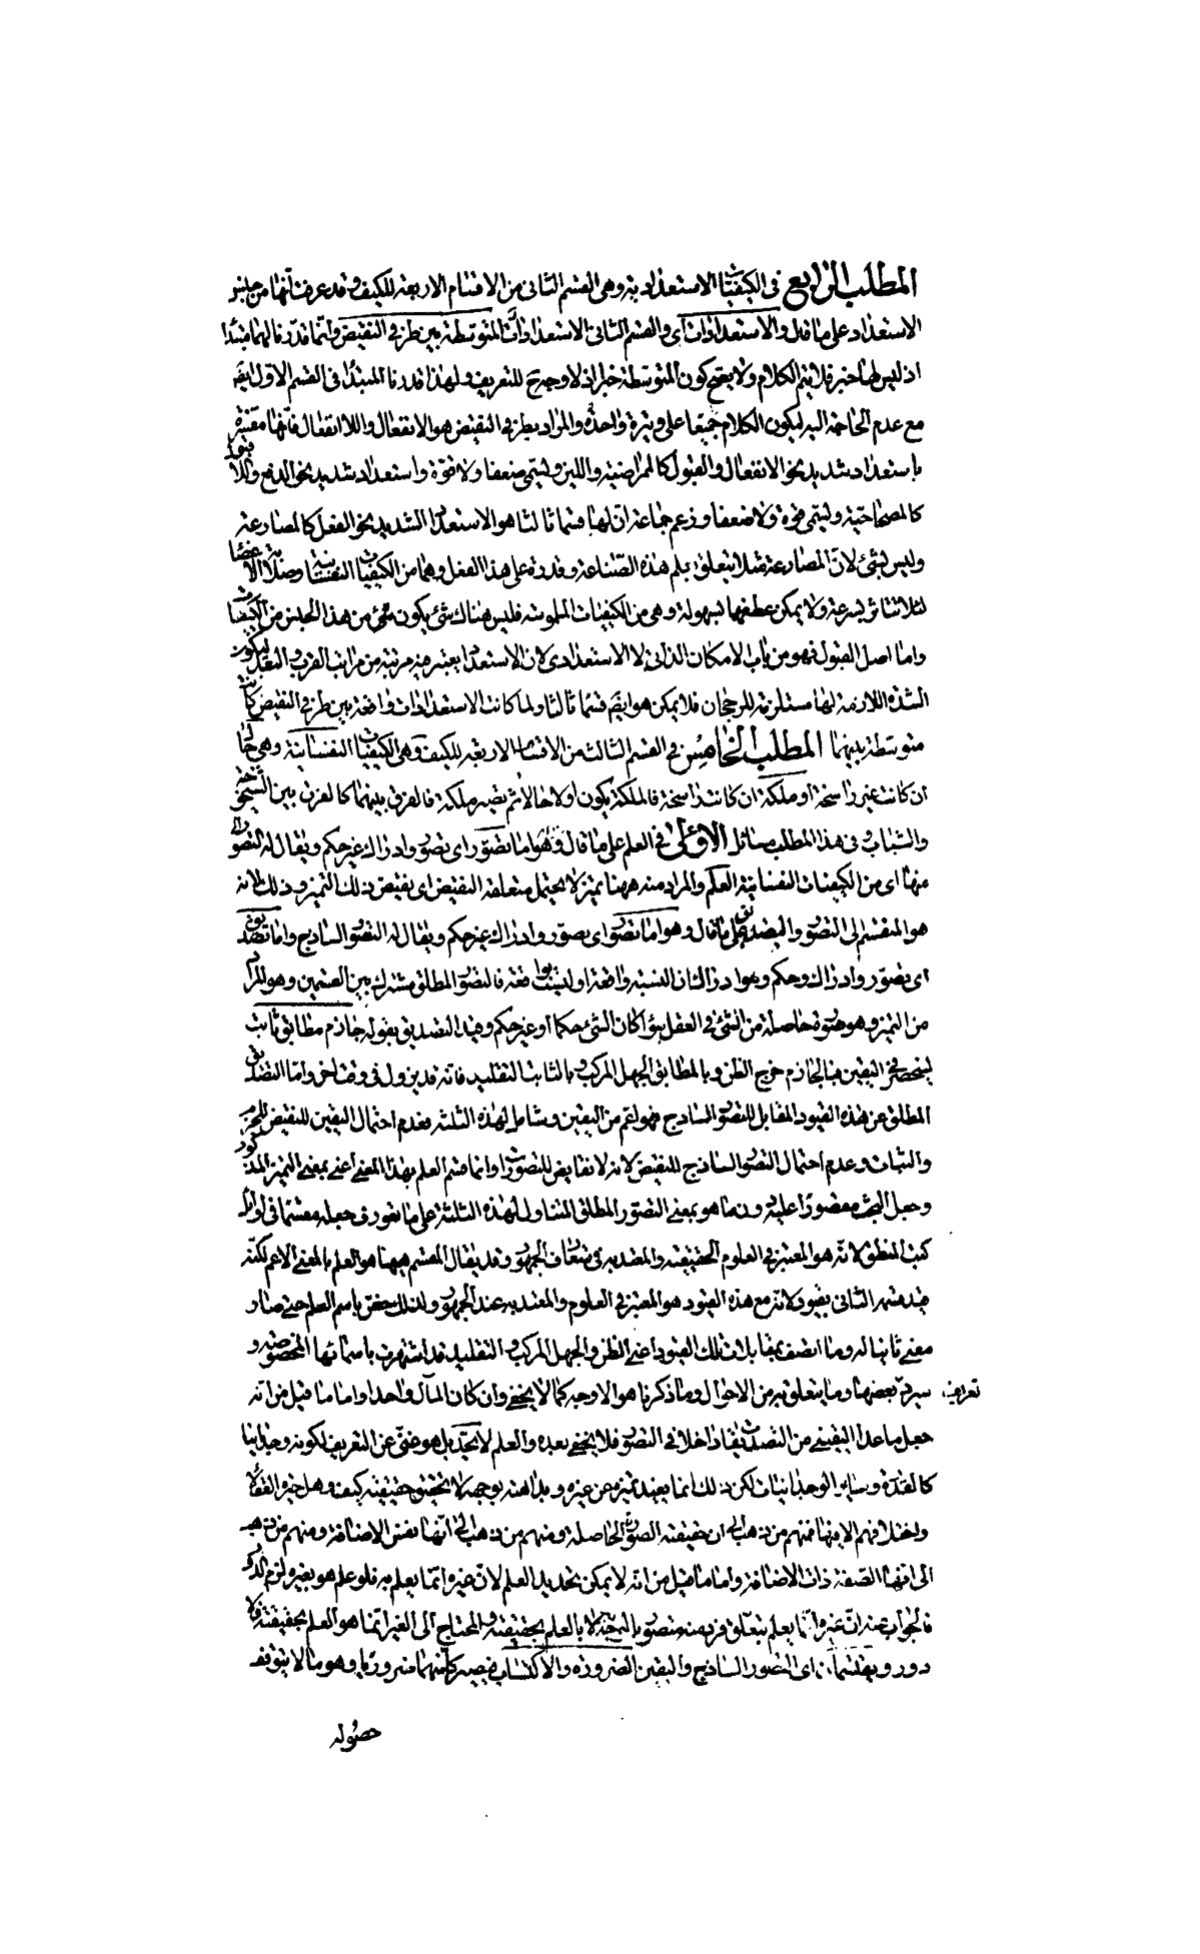 المطلب الرابع في الكيفيات الاستعدادية وهي القسم الثاني من الاقسام الاربعة للكيف وقد عرفت انها من جنس
الاستعداد على ما قال والاستعدادات اى والقسم الثانى الاستعدادات المتوسطة بين طرفى النقيض وانما قدرنا لهما مبتدا
اذ ليس لها خبر فلا يتم الكلام ولا يصح كون المتوسطة خبرا اذ لا وجه ح للتعريف ولهذا قدرنا المبتدا فى القسم الاول ايضا
مع عدم الحاجة اليه ليكون الكلام جميعا على وتيرة واحدة والمراد بطرفى النقيض هو الانفعال واللا انفعال فانها مقترنة
باستعداد شديد نحو الانفعال والقبول كالممراضية واللين وليسمى ضعفا ولا قوة واستعداد شديد نحو الدفع واللا قبول
كالمصحاحية وليسمى قوة ولا ضعفا وزعم جماعة ان لها قسما ثالثا هو الاستعداد الشديد نحو الفعل كالمصارعة
وليس بشئ لان المصارعة مثلا يتعلق بعلم هذه الصناعة وقدرة على هذا الفعل وهما من الكيفيات النفسانية وصلابة الاعضا
لئلا تتاثر بسرعة ولا يمكن عطفها بسهولة وهى من الكيفيات الملموسة فليس هناك شئ يكون من هذا الجنس من الكيفيات
واما اصل القبول فهو من باب الامكان الذاتى لا الاستعدادى لان الاستعداد يعتبر فيه مرتبة من مراتب القرب والبعد ليكون
الشدة اللازمة لها مستلزمة للرجحان فلا يمكن هو ايضا قسما ثالثا ولما كانت الاستعدادات واقعة بين طرفى النقيض كانت
متوسطة بينهما المطلب الخامس فى القسم الثالث من الاقسام الاربعة للكيف وهى الكيفيات النفسانية وهى حال
ان كانت غير راسخة او ملكة ان كانت راسخة فالملكة يكون اولا حالا ثم يصير ملكة فالفرق بينهما كالفرق بين الشيخوخة
والشباب وفى هذا المطلب مسائل الاولى فى العلم على ما قال وهو اما تصور اى تصور وادراك غير حكم ويقال له التصور
منها اى من الكيفيات النفسانية العلم والمراد منه ههنا تميز لا يحتمل متعلقه النقيض اى نقيض ذلك التميز وذلك لانه
هو المنقسم الى التصور والتصديق على ما قال وهو اما تصور اى تصور وادراك غير حكم ويقال له التصور الساذج واما تصديق
اى تصور وادراك وحكم وهو ادراك ان النسبة واقعة او ليست بواقعة فالتصور المطلق مشترك بين القسمين وهو المراد
من التميز وهو صورة حاصلة من الشئ فى العقل سواء كان الشئ حكما او غير حكم وقيد التصديق بقوله جازم مطابق ثابت
لينحصر فى اليقين فبالجازم خرج الظن وبالمطابق الجهل المركب وبالثابت التقليد فانه قد يزول فى وقت اخر واما التصديق
المطلق عن هذه القيود المقابل للتصور الساذج فهو اعم من اليقين وشامل لهذه الثلثة فعدم احتمال اليقين للنقيض للجزم
والثبات وعدم احتمال التصور الساذج للنقيض لانه لا نقايض للتصورات وانما قسم العلم بهذا المعنى اعنى بمعنى التميز المذكور
وجعل البحث مقصورا عليه دون ما هو بمعنى التصور المطلق المتناول لهذه الثلثة على ما تعورف جعله مقسما فى اوائل
كتب المنطق لانه هو المعتبر فى العلوم الحقيقية والمعتد به فى متعارف الجمهور وقد يقال المقسم ههنا هو العلم بالمعنى الاعم لكنه
قيد قسمه الثانى بقيود لانه مع هذه القيود هو المعتبر فى العلوم والمعتد به عند الجمهور ولذلك خص باسم العلم حتى صار
معنى ثانيا له وما اتصف بمقابلات تلك القيود اعنى الظن والجهل المركب والتقليد قد اشتهرت باسمائها المخصوصة و
سيرد بعضها وما يتعلق به من الاحوال وما ذكرنا هو الاوجه كما لا يخفى وان كان المآل واحدا واما ما قيل من انه
جعل ما عدا اليقينى من التصديقات داخلا فى التصور فلا يخفى بعده والعلم لا يحد بل هو غنى عن التعريف لكونه وجدانيا
كاللذة وساير الوجدانيات لكن ذلك انما يفيد تميزه عن غيره وبداهته بوجه لا تحقق حقيقته كيف وهل حير العقلاء
واختلافهم الا فيها فمنهم من ذهب الى ان حقيقته الصورة الحاصلة ومنهم من ذهب الى انها نفس الاضافة ومنهم من ذهب
الى انها الصفة ذات الاضافة واما ما قيل من انه لا يمكن تحديد العلم لان غيره انما يعلم به فلو علم هو بغيره لزم الدور
فالجواب عنه ان غيره انما يعلم بتعلق فرد منه متصور بالبديهة لا بالعلم بحقيقته والمحتاج الى الغير انما هو العلم بحقيقته فلا
دور ويقتسمان اى التصور الساذج واليقين الضرورة والاكتساب فيصير كل منهما ضروريا وهو ما لا يتوقف
حصوله